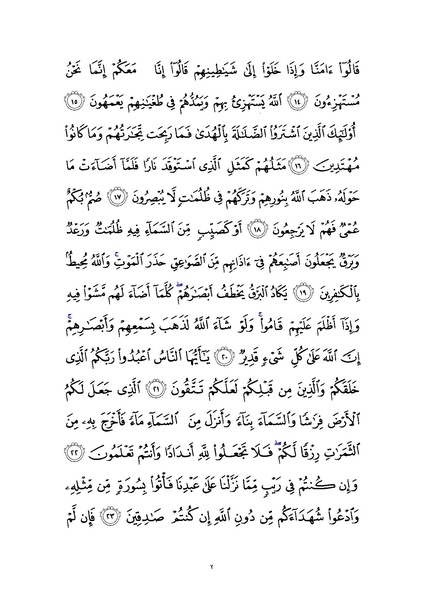 قَالُوٓا۟ ءَامَنَّا وَإِذَا خَلَوْا۟ إِلَىٰ شَيَـٰطِينِهِمْ قَالُوٓا۟ إِنَّا مَعَكُمْ إِنَّمَا نَحْنُ
مُسْتَهْزِءُونَ ۝١٤ ٱللَّهُ يَسْتَهْزِئُ بِهِمْ وَيَمُدُّهُمْ فِى طُغْيَـٰنِهِمْ يَعْمَهُونَ ۝١٥
أُو۟لَـٰٓئِكَ ٱلَّذِينَ ٱشْتَرَوُا۟ ٱلضَّلَـٰلَةَ بِٱلْهُدَىٰ فَمَا رَبِحَت تِّجَـٰرَتُهُمْ وَمَا كَانُوا۟
مُهْتَدِينَ ۝١٦ مَثَلُهُمْ كَمَثَلِ ٱلَّذِى ٱسْتَوْقَدَ نَارًا فَلَمَّآ أَضَآءَتْ مَا
حَوْلَهُۥ ذَهَبَ ٱللَّهُ بِنُورِهِمْ وَتَرَكَهُمْ فِى ظُلُمَـٰتٍ لَّا يُبْصِرُونَ ۝١٧ صُمٌّۢ بُكْمٌ
عُمْىٌ فَهُمْ لَا يَرْجِعُونَ ۝١٨ أَوْ كَصَيِّبٍ مِّنَ ٱلسَّمَآءِ فِيهِ ظُلُمَـٰتٌ وَرَعْدٌ
وَبَرْقٌ يَجْعَلُونَ أَصَـٰبِعَهُمْ فِىٓ ءَاذَانِهِم مِّنَ ٱلصَّوَٰعِقِ حَذَرَ ٱلْمَوْتِ ۚ وَٱللَّهُ مُحِيطٌۢ
بِٱلْكَـٰفِرِينَ ۝١٩ يَكَادُ ٱلْبَرْقُ يَخْطَفُ أَبْصَـٰرَهُمْ ۖ كُلَّمَآ أَضَآءَ لَهُم مَّشَوْا۟ فِيهِ
وَإِذَآ أَظْلَمَ عَلَيْهِمْ قَامُوا۟ ۚ وَلَوْ شَآءَ ٱللَّهُ لَذَهَبَ بِسَمْعِهِمْ وَأَبْصَـٰرِهِمْ ۚ
إِنَّ ٱللَّهَ عَلَىٰ كُلِّ شَىْءٍ قَدِيرٌ ۝٢٠ يَـٰٓأَيُّهَا ٱلنَّاسُ ٱعْبُدُوا۟ رَبَّكُمُ ٱلَّذِى
خَلَقَكُمْ وَٱلَّذِينَ مِن قَبْلِكُمْ لَعَلَّكُمْ تَتَّقُونَ ۝٢١ ٱلَّذِى جَعَلَ لَكُمُ
ٱلْأَرْضَ فِرَٰشًا وَٱلسَّمَآءَ بِنَآءً وَأَنزَلَ مِنَ ٱلسَّمَآءِ مَآءً فَأَخْرَجَ بِهِۦ مِنَ
ٱلثَّمَرَٰتِ رِزْقًا لَّكُمْ ۖ فَلَا تَجْعَلُوا۟ لِلَّهِ أَندَادًا وَأَنتُمْ تَعْلَمُونَ ۝٢٢
وَإِن كُنتُمْ فِى رَيْبٍ مِّمَّا نَزَّلْنَا عَلَىٰ عَبْدِنَا فَأْتُوا۟ بِسُورَةٍ مِّن مِّثْلِهِۦ
وَٱدْعُوا۟ شُهَدَآءَكُم مِّن دُونِ ٱللَّهِ إِن كُنتُمْ صَـٰدِقِينَ ۝٢٣ فَإِن لَّمْ
٢